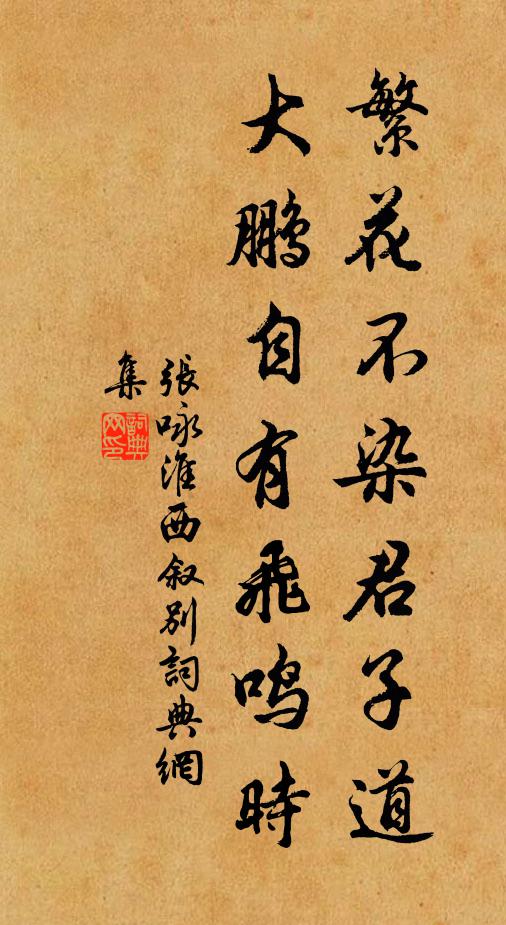 繁花不染君子道
大鹏自有飛鸣時
張咏淮西叙别詞典網
集
詞典
网印